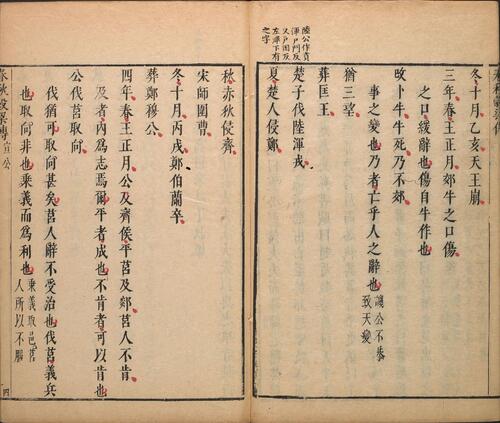 冬十月乙亥天王崩
三年春王正月郊牛之口傷
之口緩辭也傷自牛作也
改卜牛牛死乃不郊
事之變也乃者亡乎人之辭也譏公不恭
致天變
猶三望
葬匡王
陸公作賁
渾戶門反
又戶困反
左渾下有
之字
楚子伐陸渾戎
夏楚人侵鄭
秋赤狄侵齊
宋師圍曹
冬十月丙戌鄭伯蘭卒
葬鄭穆公
四年春王正月公及齊侯平莒及郯莒人不肯
及者內爲志焉爾平者成也不肯者可以肯也
公伐莒取向
伐猶可取向甚矣莒人辭不受治也伐莒義兵
也取向非也乘義而爲利也乘義取邑莒
人所以不服
春秋穀梁傳 宣公 四